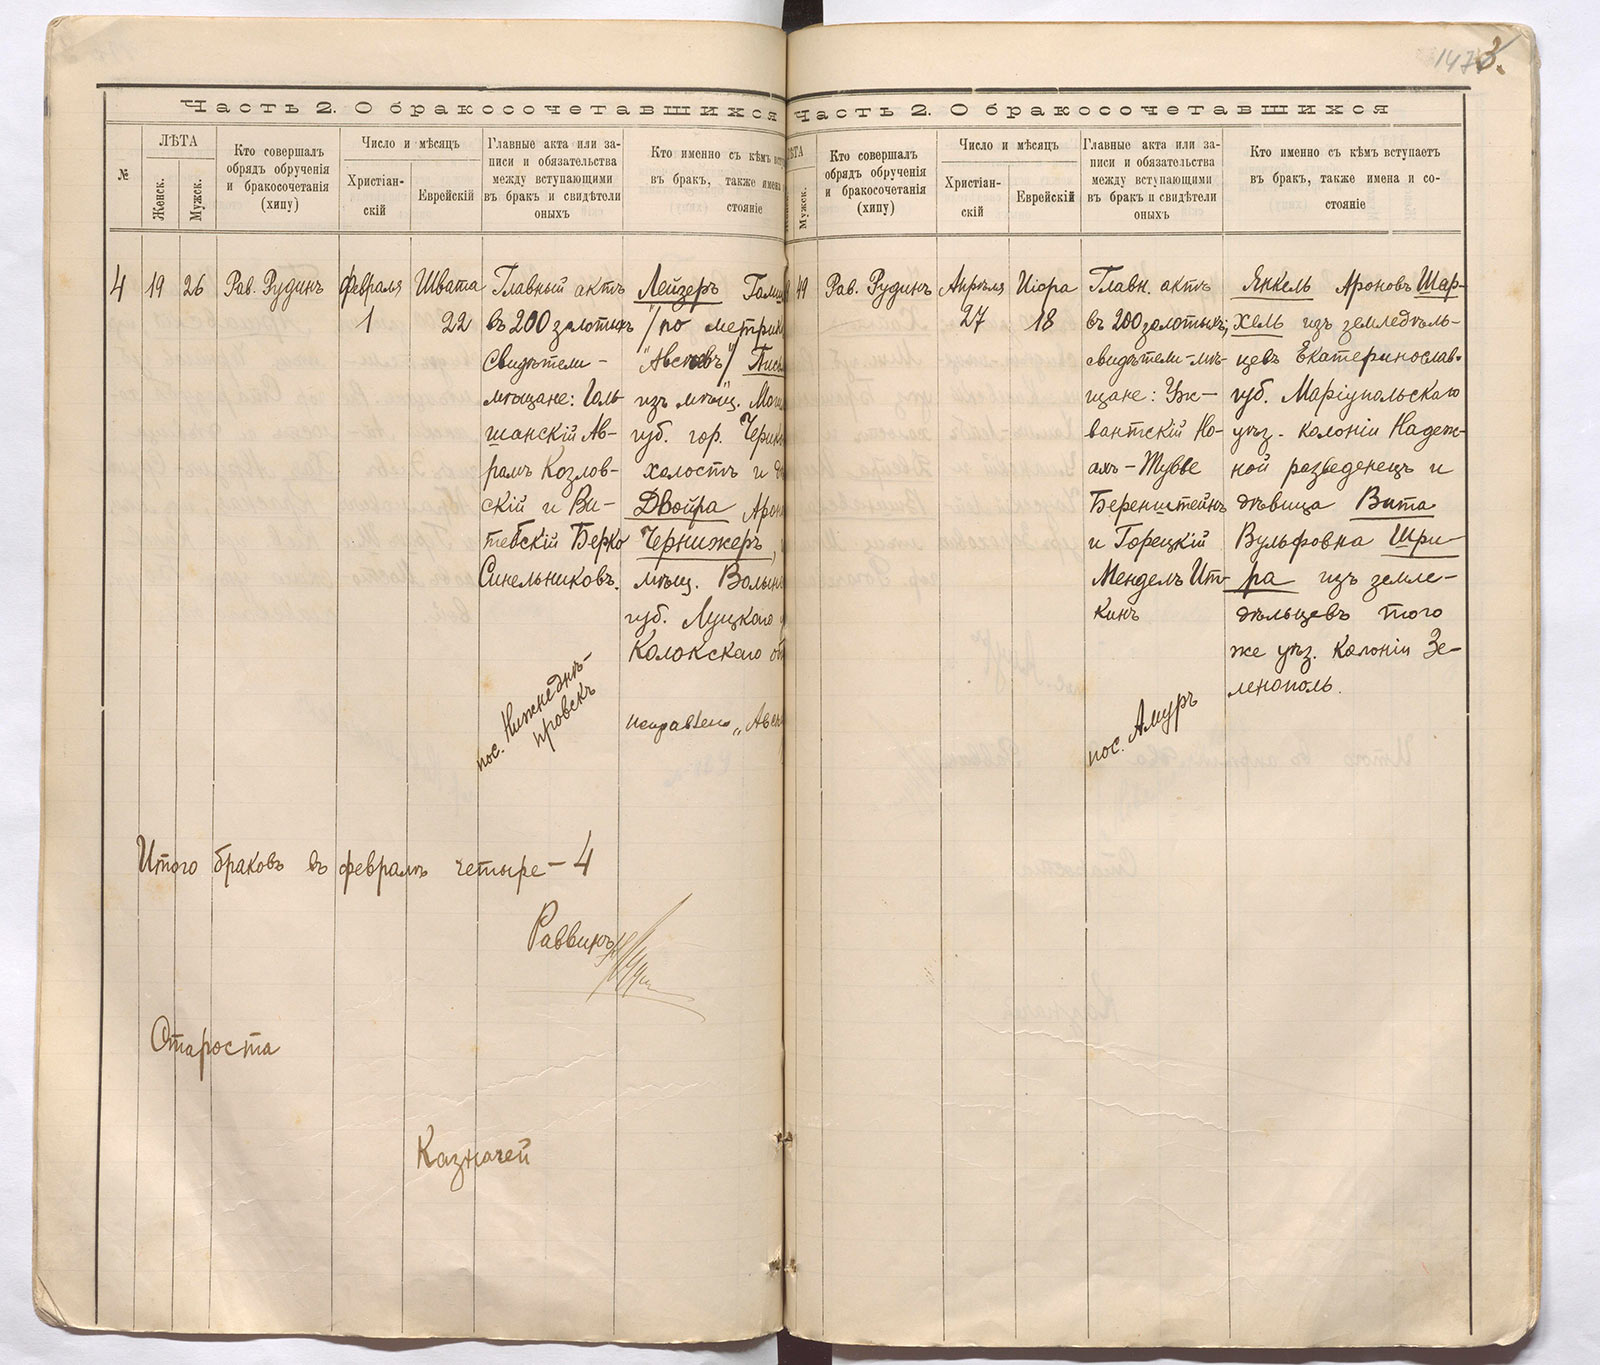 Часть 2. О бракосочетавшихся
№
ЛѢТА
Женск.
Мужск.
Кто совершалъ
обрядъ обрученія
и бракосочетанія
(хипу)
Число и мѣсяцъ
Христіан-
скій
Еврейскій
Главные акта или за-
писи и обязательства
между вступающими
въ бракъ и свидѣтели
оныхъ
Кто именно съ кѣмъ
въ бракъ, также имена
стояніе
4
19
26
Рав. Рудинъ
Февраля
1
Швата
22
Главный актъ
въ 200 золотыхъ
Свидѣтели –
мѣщане: Голь-
шанскій Ав-
рамъ Козлов-
скій и Ви-
тебскій Берко
Синельниковъ.
пос. Нижнеднѣ-
провскъ
Лейзеръ
/по метрик
"
изъ мѣщ.
губ. гор.
холостъ и
Двойра
Чернижеръ,
мѣщ.
губ. Луцкаго
Колокскаго
Исправлено „
Итого браковъ въ февралѣ четыре – 4
Раввинъ
Староста
Казначей
3.
Часть 2. О бракосочетавшихся
Мужск.
Кто совершалъ
обрядъ обрученія
и бракосочетанія
(хипу)
Число и мѣсяцъ
Христіан-
скій
Еврейскій
Главные акта или за-
писи и обязательства
между вступающими
въ бракъ и свидѣтели
оныхъ
Кто именно съ кѣмъ вступаетъ
въ бракъ, также имена и со-
стояніе
49
Рав. Рудинъ
Апрѣля
27
Иіора
18
Главн. актъ
въ 200 золотыхъ;
свидѣтели–мѣ-
щане: Уж-
вантскій Но-
ахъ–Тувве
Беренштейнъ
и Горецкій
Мендель Ит-
кинъ
пос. Амуръ
Янкель Ароновъ Шар-
хель изъ земледѣль-
цевъ Екатеринослав.
губ. Маріупольскаго
уѣз. колоніи Надеж-
ной разведенецъ и
дѣвица Вита
Вульфовна Шри-
ра изъ земле-
дѣльцевъ того
же уѣз. колоніи Зе-
ленополь.